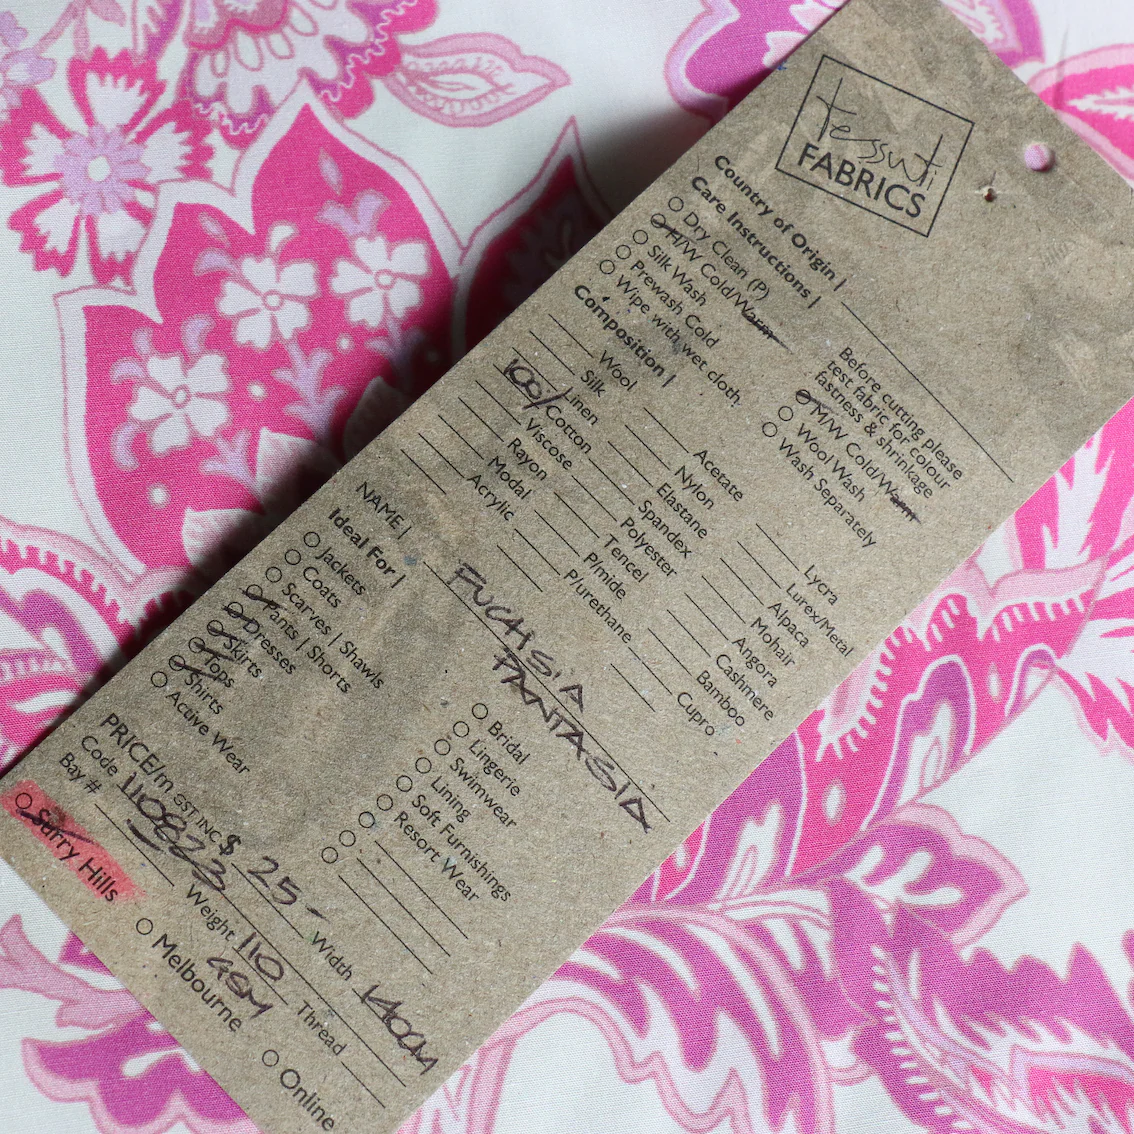 Tessuti
FABRICS
Country of Origin |
Care Instructions |
Dry Clean (P)
H/W Cold/Warm
Silk Wash
Prewash Cold
Wipe with wet cloth
Before cutting please
test fabric for colour
fastness & shrinkage
M/W Cold/Warm
Wool Wash
Wash Separately
Composition |
Wool
Silk
Linen
100% Cotton
Viscose
Rayon
Modal
Acrylic
Acetate
Nylon
Elastane
Spandex
Polyester
Tencel
P/mide
P/urethane
Lycra
Lurex/Metal
Alpaca
Mohair
Angora
Cashmere
Bamboo
Cupro
NAME | FUCHSIA
FANTASIA
Ideal For |
Jackets
Coats
Scarves | Shawls
Pants | Shorts
Dresses
Skirts
Tops
Shirts
Active Wear
Bridal
Lingerie
Swimwear
Lining
Soft Furnishings
Resort Wear
PRICE/m GST INC $ 25 - Width 140CM
Code 110823 Weight 110 GSM Thread
Bay #
Surry Hills
Melbourne
Online